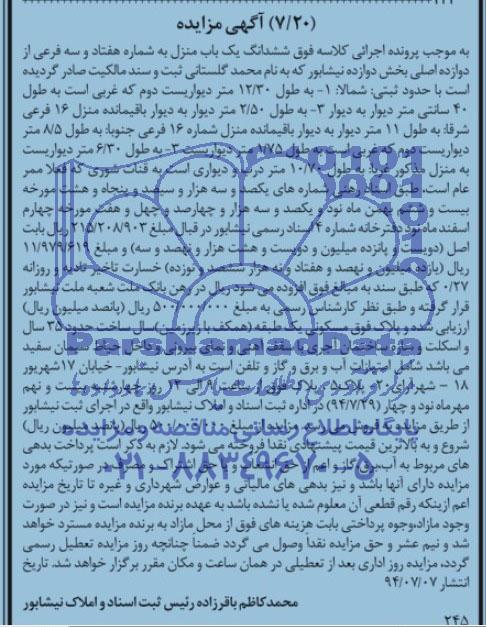 (۷/۲۰) آگهی مزایده
به موجب پرونده اجرائی کلاسه فوق ششدانگ یک باب منزل به شماره هفتاد و سه فرعی از
دوازده اصلی بخش دوازده نیشابور که به نام محمد گلستانی ثبت و سند مالکیت صادر گردیده
است با حدود ثبتی: شمالا: ۱- به طول ۱۲/۳۰ متر دیواریست دوم که غربی است به طول
۴۰ سانتی متر دیوار به دیوار ۳- به طول ۲/۵۰ متر دیوار به دیوار باقیمانده منزل ۱۶ فرعی
شرقا: به طول ۱۱ متر دیوار به دیوار باقیمانده منزل شماره ۱۶ فرعی جنوبا: به طول ۸/۵ متر
دیواریست دوم که غربی است به طول ۱/۷۵ متر دیواریست ۳- به طول ۶/۳۰ متر دیواریست
به منزل مذکور غربا: به طول ۱۰/۷۰ متر درب و دیواری است به قنات شوری که فعلا ممر
عام است. طبق اسناد رهنی شماره های یکصد و سه هزار و سیصد و پنجاه و هشت مورخه
بیست و بهمن ماه نود و یکصد و سه هزار و چهارصد و چهل و هفت مورخه چهارم
اسفند ماه نود دفترخانه شماره ۴ اسناد رسمی نیشابور در قبال مبلغ ۲۱۵/۲۰۸/۹۰۳ ریال بابت
اصل (دویست و پانزده میلیون و دویست و هشت هزار و نهصد و سه) و مبلغ ۱۱/۹۷۹/۶۱۹
ریال (یازده میلیون و نهصد و هفتاد و نه هزار ششصد و نوزده) خسارت تاخیر تادیه و روزانه
۰/۲۷ که طبق سند به مبالغ فوق افزوده می شود ریال در رهن بانک ملت شعبه ملت نیشابور
قرار گرفته و طبق نظر کارشناس رسمی به مبلغ ۵۰۰/۰۰۰/۰۰۰ ریال (پانصد میلیون ریال)
ارزیابی شده و پلاک فوق مسکونی یک طبقه (همکف با زیرزمین) سال ساخت حدود ۳۵ سال
و اسکلت و سازه ساختمان اجری با سقف آهنی و نمای بیرونی و داخل حیاط سیمان سفید
می باشد شامل امتیازات آب و برق و گاز و تلفن است به آدرس نیشابور- خیابان ۱۷ شهریور
۱۸ - شهرآرای ۲۰ پلاک پلاک فوق از ساعت ۹ الی ۱۲ روز چهارشنبه بیست و نهم
مهرماه نود و چهار (۹۴/۷/۲۹) در اداره ثبت اسناد و املاک نیشابور واقع در اجرای ثبت نیشابور
از طریق مزایده به فروش می رسد. مزایده از مبلغ ریال (پانصد میلیون ریال)
شروع و به بالاترین قیمت پیشنهادی نقدا فروخته می شود. لازم به ذکر است پرداخت بدهی
های مربوط به آب، برق، گاز و اعم از حق انشعاب و یا حق اشتراک و مصرف در صورتیکه مورد
مزایده دارای آنها باشد و نیز بدهی های مالیاتی و عوارض شهرداری و غیره تا تاریخ مزایده
اعم ازینکه رقم قطعی آن معلوم شده یا نشده باشد به عهده برنده مزایده است و نیز در صورت
وجود مازاد، وجوه پرداختی بابت هزینه های فوق از محل مازاد به برنده مزایده مسترد خواهد
شد و نیم عشر و حق مزایده نقدا وصول می گردد ضمناً چنانچه روز مزایده تعطیل رسمی
گردد، مزایده روز اداری بعد از تعطیلی در همان ساعت و مکان مقرر برگزار خواهد شد. تاریخ
انتشار ۹۴/۰۷/۰۷
محمدکاظم باقرزاده رئیس ثبت اسناد و املاک نیشابور
۲۴۵
ParsNamadData
پایگاه اطلاع رسانی مناقصه و مزایده
۰۲۱-۸۸۳۴۹۶۷۰-۵